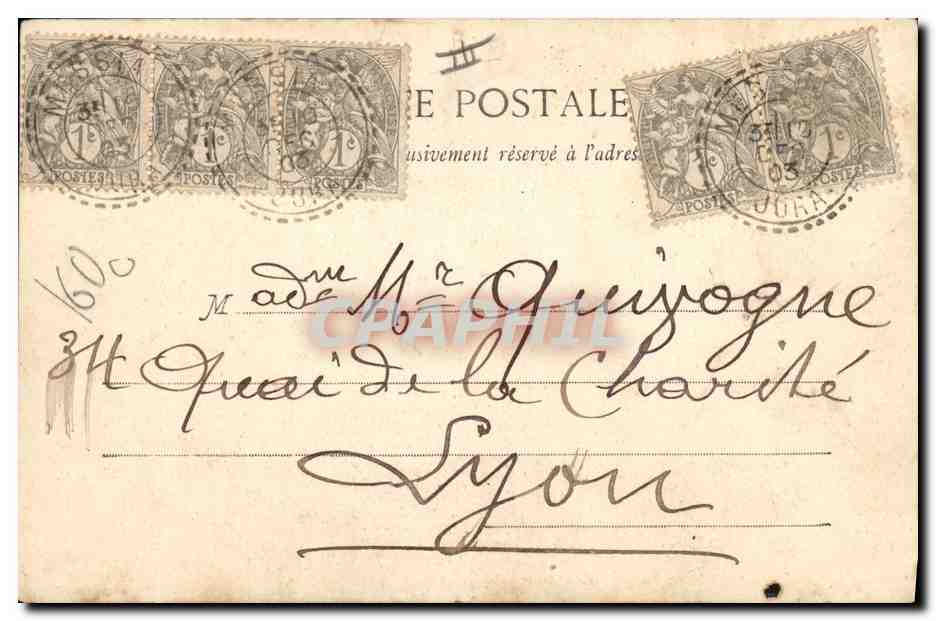 E POSTALE
usivement réservé à l'adres
1c POSTES 1c POSTES 1c POSTES 1c POSTES 1c POSTES
JURA
03
160
Madme Mr Quivogne
34 Quai de la Charité
Lyon
CPAPHIL